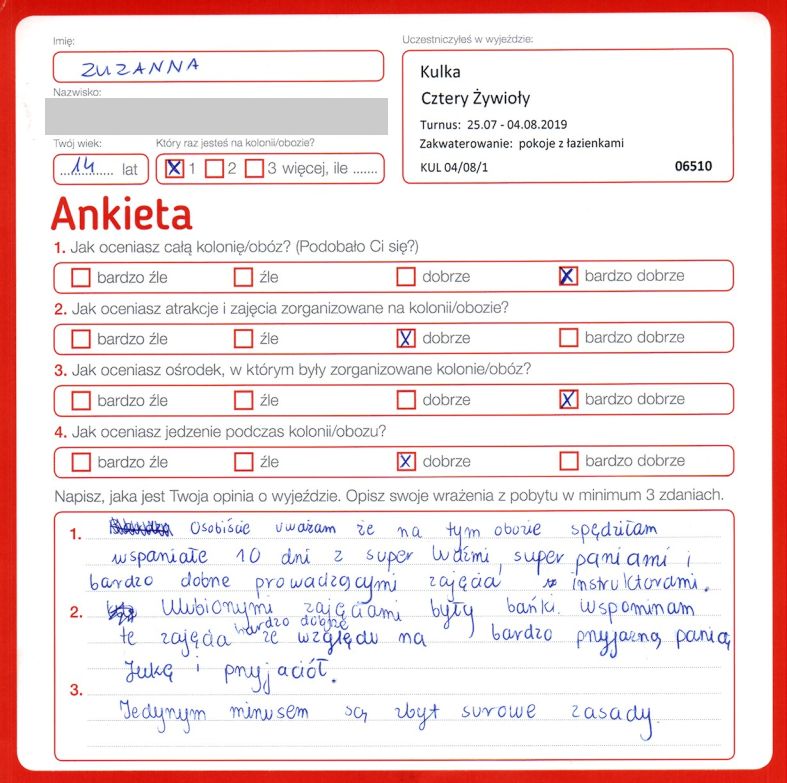 Imię:
ZUZANNA
Nazwisko:
Twój wiek:
14 lat
Który raz jesteś na kolonii/obozie?
X 1 2 3 więcej, ile .......
Uczestniczyłeś w wyjeździe:
Kulka
Cztery Żywioły
Turnus: 25.07 - 04.08.2019
Zakwaterowanie: pokoje z łazienkami
KUL 04/08/1 06510
Ankieta
1. Jak oceniasz całą kolonię/obóz? (Podobało Ci się?)
bardzo źle źle dobrze X bardzo dobrze
2. Jak oceniasz atrakcje i zajęcia zorganizowane na kolonii/obozie?
bardzo źle źle X dobrze bardzo dobrze
3. Jak oceniasz ośrodek, w którym były zorganizowane kolonie/obóz?
bardzo źle źle dobrze X bardzo dobrze
4. Jak oceniasz jedzenie podczas kolonii/obozu?
bardzo źle źle X dobrze bardzo dobrze
Napisz, jaka jest Twoja opinia o wyjeździe. Opisz swoje wrażenia z pobytu w minimum 3 zdaniach.
1. Osobiście uważam że na tym obozie spędziłam
wspaniałe 10 dni z super ludźmi, super paniami i
bardzo dobrze prowadzącymi zajęcia instruktorami.
2. Ulubionymi zajęciami były bańki. Wspominam
te zajęcia bardzo dobrze ze względu na bardzo przyjazną panią
Julkę i przyjaciół.
3. Jedynym minusem są zbyt surowe zasady.